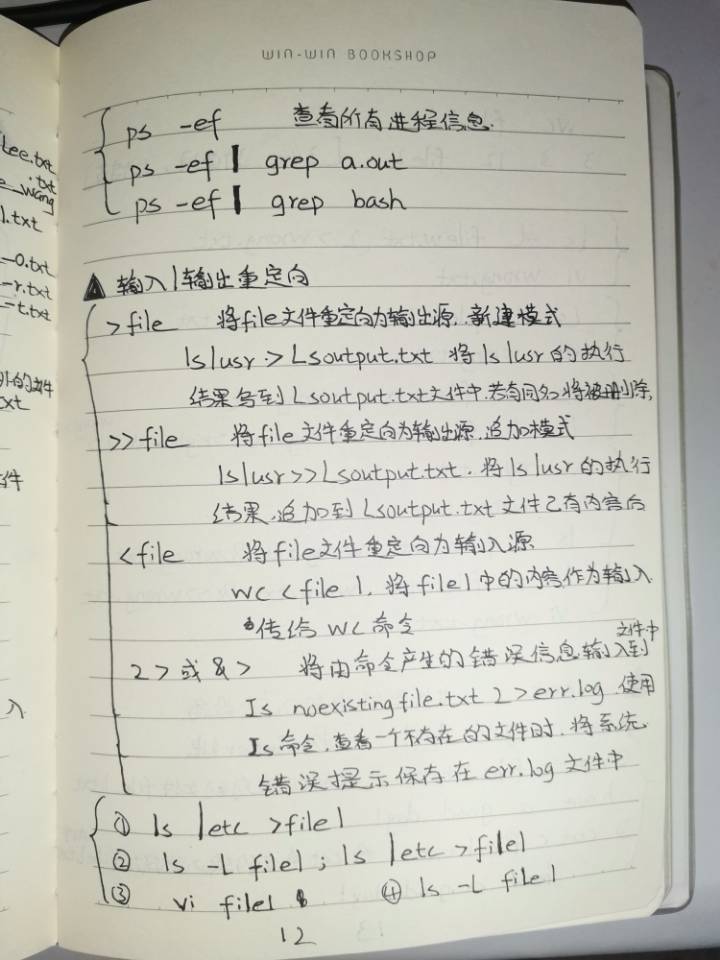 WIN-WIN BOOKSHOP
Lee.txt
.txt
e_wang
1.txt
-0.txt
-r.txt
-t.txt
外的文件
txt
件
入
ps -ef 查看所有进程信息.
ps -ef | grep a.out
ps -ef | grep bash
▲ 输入/输出重定向
>file 将file文件重定向为输出源, 新建模式
ls /usr > Lsoutput.txt 将 ls /usr 的执行
结果写到 Lsoutput.txt文件中,若有同名将被删除,
>>file 将file文件重定向为输出源,追加模式
ls /usr >> Lsoutput.txt. 将 ls /usr 的执行
结果,追加到 Lsoutput.txt 文件已有内容后
<file 将file文件重定向为输入源
wc < file 1. 将 file1 中的内容作为输入
传给 wc 命令
2> 或 &> 将由命令产生的错误信息输入到文件中
Is noexistingfile.txt 2>err.log 使用
Is 命令,查看一个不存在的文件时,将系统
错误提示保存在 err.log 文件中
① ls /etc >file1
② ls -L file1 ; ls /etc >file1
③ vi file1 ④ ls -L file1
12